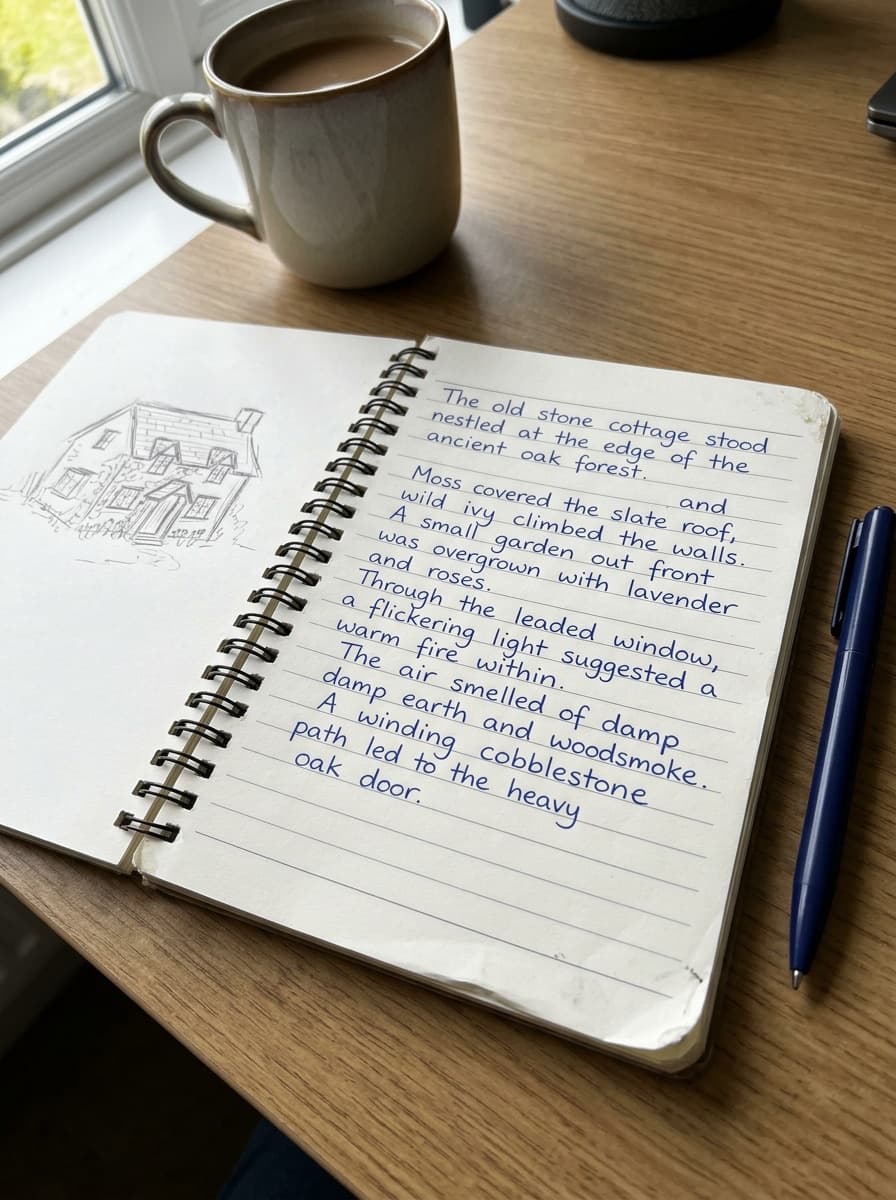 The old stone cottage stood
nestled at the edge of the
ancient oak forest.
and
Moss covered the slate roof,
wild ivy climbed the walls.
A small garden out front
was overgrown with lavender
and roses.
Through the leaded window,
a flickering light suggested a
warm fire within.
The air smelled of damp
damp earth and woodsmoke.
A winding cobblestone
path led to the heavy
oak door.